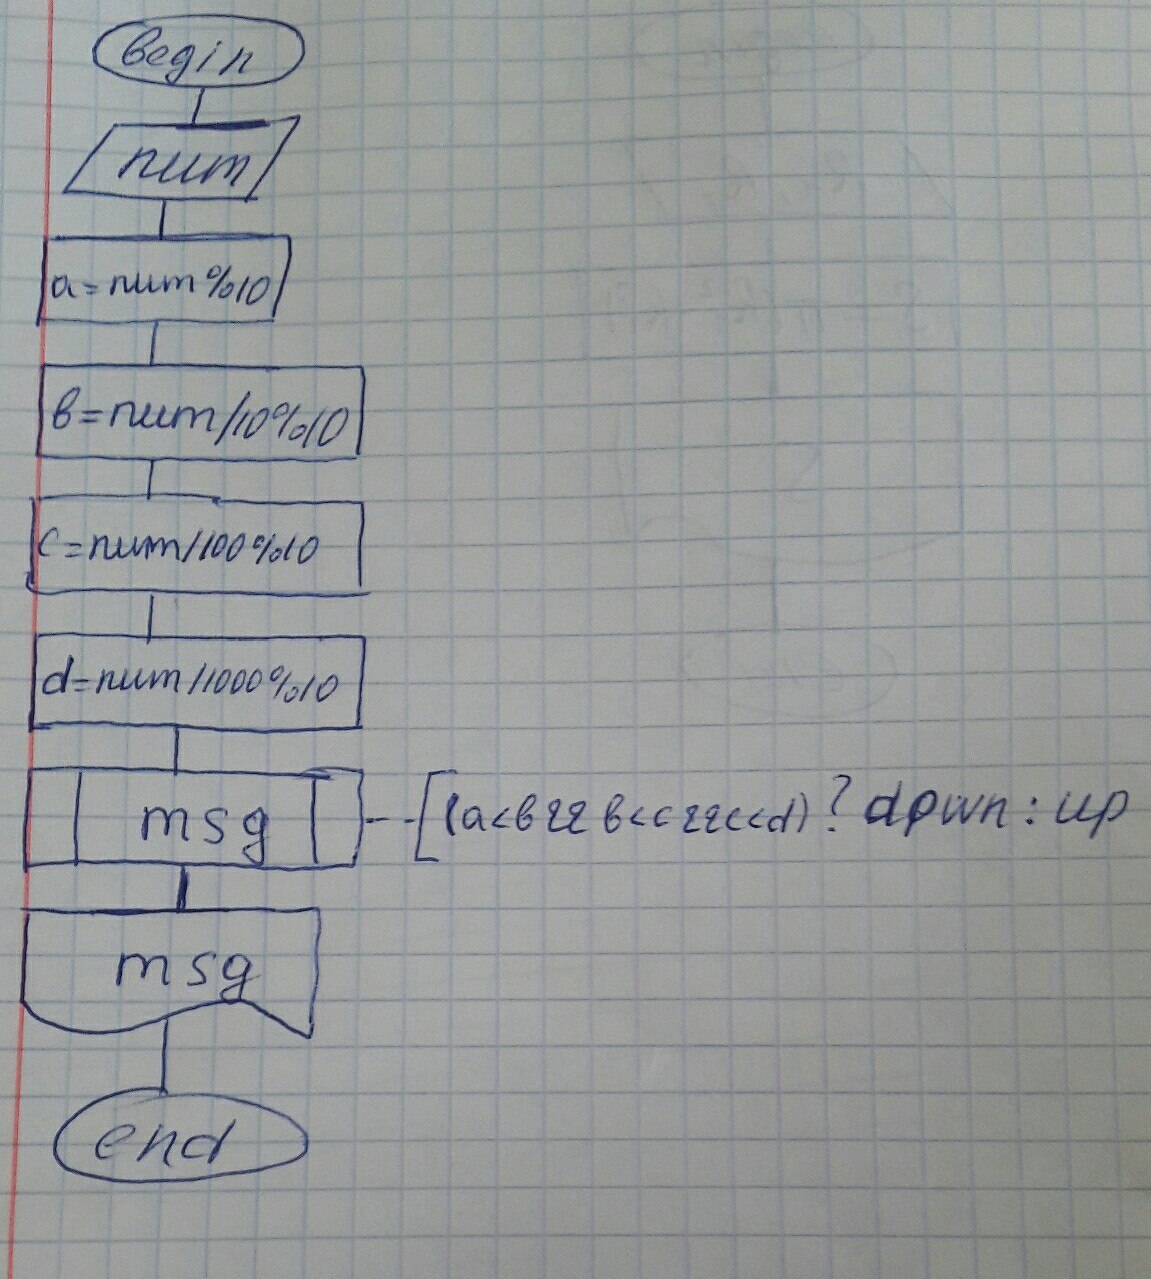 begin
num
a=num%10
b=num/10%10
c=num/100%10
d=num/1000%10
msg
(a<b&&b<c&&c<d)? down : up
msg
end